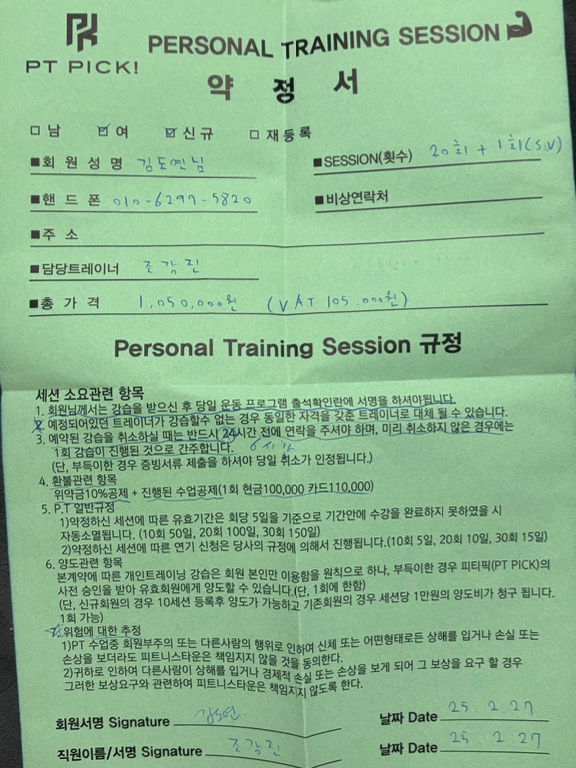 PT PICK!
PERSONAL TRAINING SESSION
약 정 서
□ 남 ☑ 여 ☑ 신규 □ 재등록
■회 원 성 명 김도연님
■SESSION(횟수) 20회 + 1회(S.V)
■핸 드 폰 010-6297-5820
■비상연락처
■주 소
■담당트레이너 조각진
■총 가 격 1,050,000원 (VAT 105,000원)
Personal Training Session 규정
세션 소요관련 항목
1. 회원님께서는 강습을 받으신 후 당일 운동 프로그램 출석확인란에 서명을 하셔야됩니다.
2. 예정되어있던 트레이너가 강습할수 없는 경우 동일한 자격을 갖춘 트레이너로 대체 될 수 있습니다.
3. 예약된 강습을 취소하실 때는 반드시 24시간 전에 연락을 주셔야 하며, 미리 취소하지 않은 경우에는
1회 강습이 진행된 것으로 간주합니다.
(단, 부득이한 경우 증빙서류 제출을 하셔야 당일 취소가 인정됩니다.)
4. 환불관련 항목
위약금10%공제 + 진행된 수업공제(1회 현금100,000 카드110,000)
5. P.T 일반규정
1)약정하신 세션에 따른 유효기간은 회당 5일을 기준으로 기간안에 수강을 완료하지 못하였을 시
자동소멸됩니다. (10회 50일, 20회 100일, 30회 150일)
2)약정하신 세션에 따른 연기 신청은 당사의 규정에 의해서 진행됩니다.(10회 5일, 20회 10일, 30회 15일)
6. 양도관련 항목
본계약에 따른 개인트레이닝 강습은 회원 본인만 이용함을 원칙으로 하나, 부득이한 경우 피티픽(PT PICK)의
사전 승인을 받아 유효회원에게 양도할 수 있습니다.(단, 1회에 한함)
(단, 신규회원의 경우 10세션 등록후 양도가 가능하고 기존회원의 경우 세션당 1만원의 양도비가 청구 됩니다.
1회 가능)
7. 위험에 대한 추정
1)PT 수업중 회원부주의 또는 다른사람의 행위로 인하여 신체 또는 어떤형태로든 상해를 입거나 손실 또는
손상을 보더라도 피트니스타운은 책임지지 않을 것을 동의한다.
2)귀하로 인하여 다른사람이 상해를 입거나 경제적 손실 또는 손상을 보게 되어 그 보상을 요구 할 경우
그러한 보상요구와 관련하여 피트니스타운은 책임지지 않도록 한다.
회원서명 Signature 김도연 날짜 Date 25. 2. 27
직원이름/서명 Signature 조각진 날짜 Date 25. 2. 27